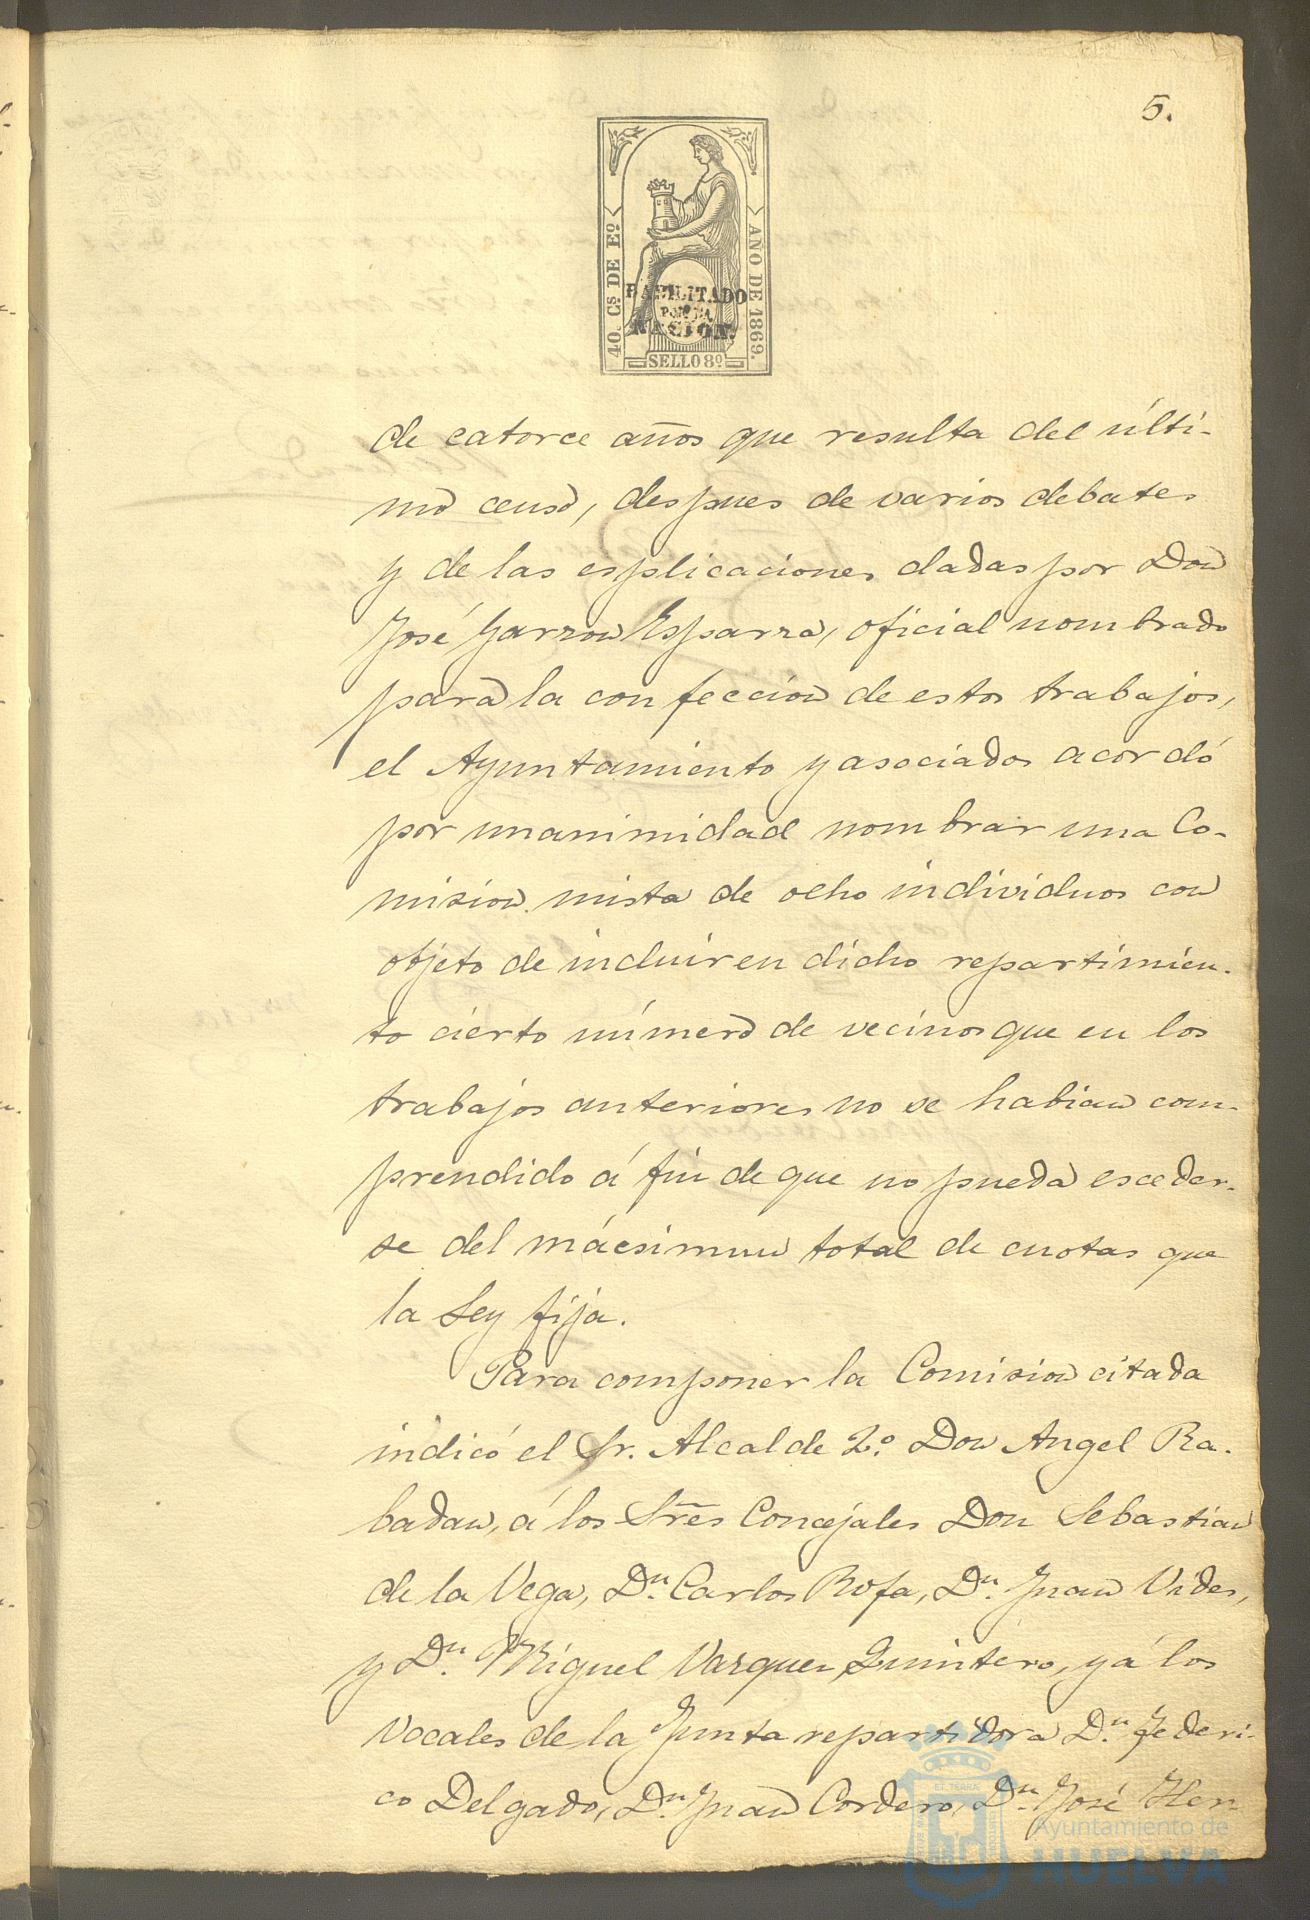 5.
40. Cs. DE Eº.
AÑO DE 1869.
HABILITADO
POR LA
NACION.
SELLO 8º
de catorce años que resulta del últi-
mo censo, despues de varios debates
y de las esplicaciones dadas por Don
José Garzon Esparza, oficial nombrado
para la confeccion de estos trabajos,
el Ayuntamiento y asociados acordó
por unanimidad nombrar una Co-
mision mista de ocho individuos con
objeto de incluir en dicho repartimien-
to cierto número de vecinos que en los
trabajos anteriores no se habian com-
prendido á fin de que no pueda esceder-
se del mácsimun total de cuotas que
la Ley fija.
Para componer la Comision citada
indicó el Sr. Alcalde 2.º Don Angel Ra-
badan, á los Sres Concejales Don Sebastian
de la Vega, Dn. Carlos Rofa, Dn. Juan Vides,
y Dn. Miguel Vazquez Quintero, y á los
Vocales de la Junta repartidora Dn. Federi-
co Delgado, Dn. Juan Cordero, Dn. José Her
Ayuntamiento de
HUELVA